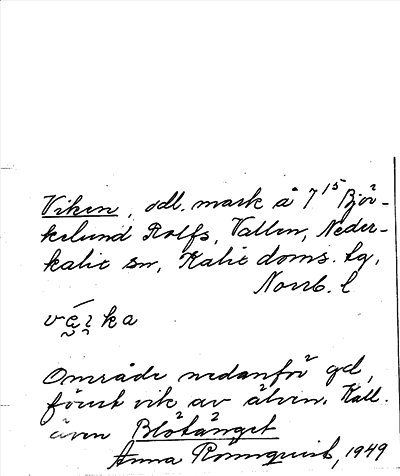 Viken, odl. mark å 7¹⁵ Björ-
kelund Rolfs, Vallen, Neder-
kalix sn, Kalix doms. lg,
Norrb. l
Område nedanför gd,
förut vik av älven. Kall.
även Blötänget
Anna Rönnqvist, 1949